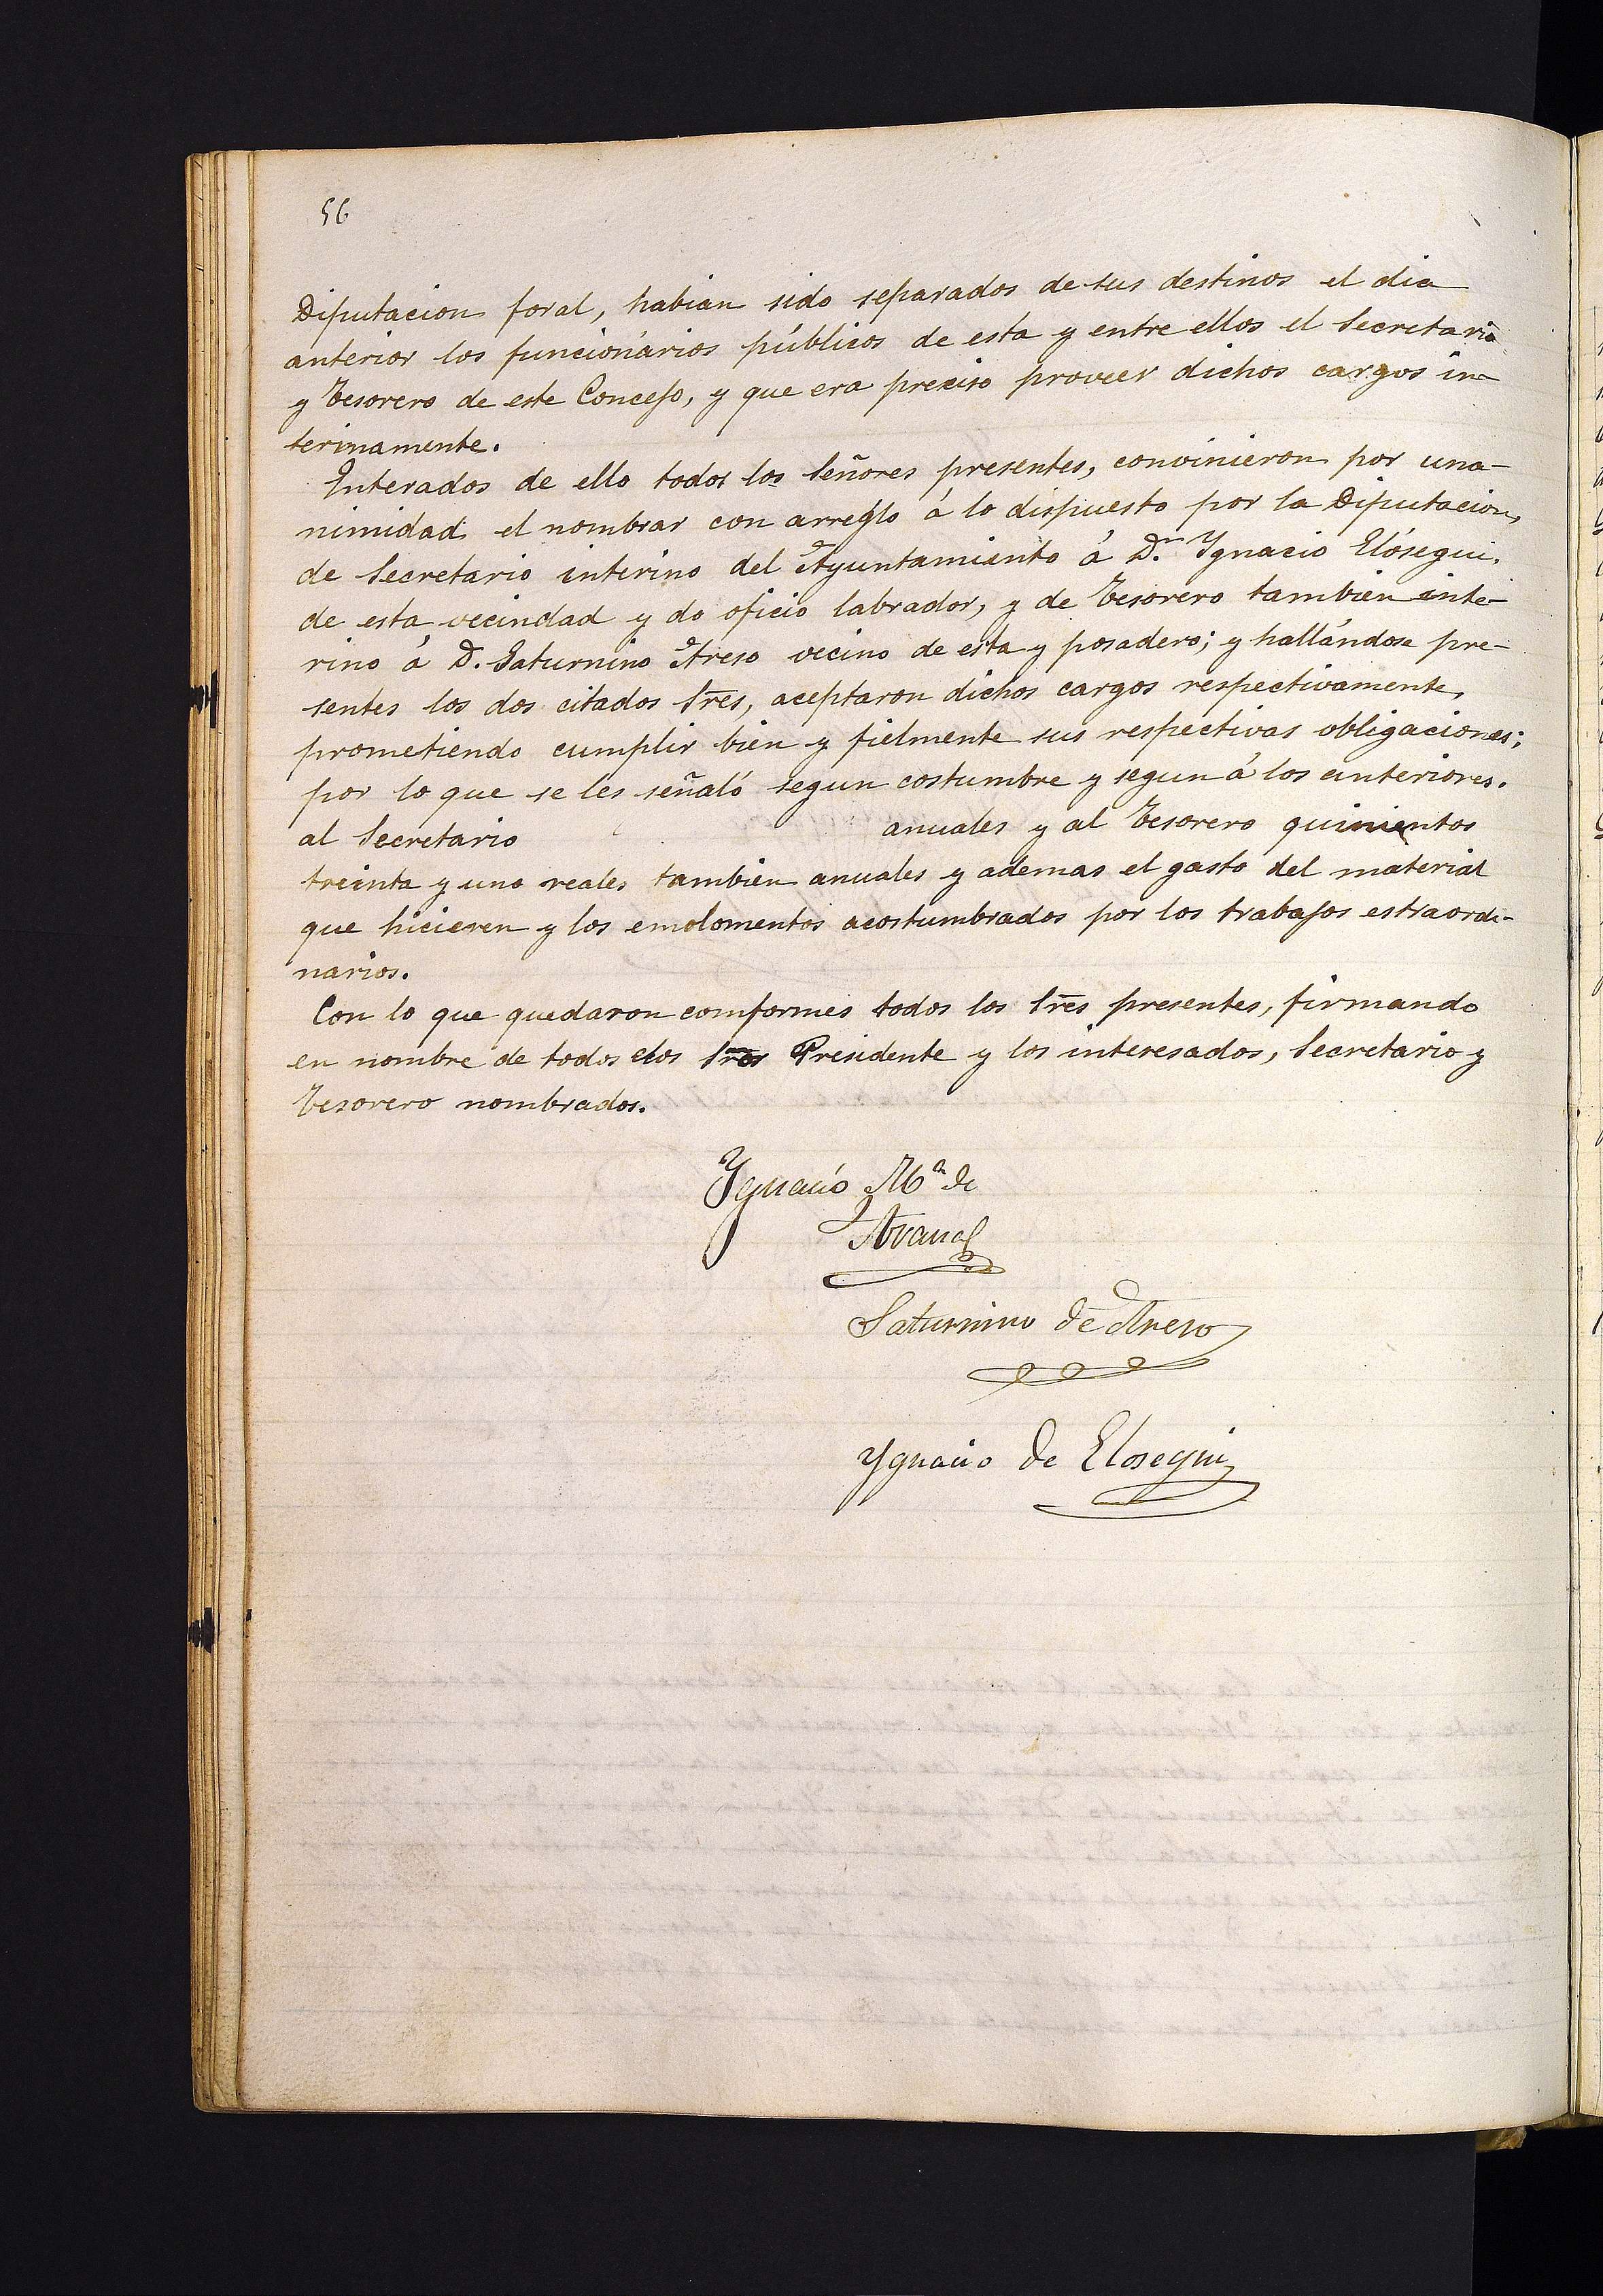 56
Diputacion foral, habian sido separados de sus destinos el dia
anterior los funcionários públicos de esta y entre ellos el Secretario
y Tesorero de este Concejo, y que era preciso proveer dichos cargos in-
terinamente.
Interados de ello todos los Señores presentes, convinieron por una-
nimidad el nombrar con arreglo á lo dispuesto por la Diputacion,
de Secretario interino del Ayuntamiento á D.n Ygnacio Elósegui.
de esta vecindad y do oficio labrador, y de Tesorero tambien inte-
rino á D. Saturnino Areso vecino de esta y posadero; y hallándose pre-
sentes los dos citados Sres, aceptaron dichos cargos respectivamente,
prometiendo cumplir bien y fielmente sus respectivas obligaciones;
por lo que se les señaló segun costumbre y segun á los anteriores.
al Secretario anuales y al Tesorero quinientos
treinta y uno reales tambien anuales y ademas el gasto del material
que hicieren y los emolomentos acostumbrados por los trabajos estraordi-
narios.
Con lo que quedaron comformes todos los Sres presentes, firmando
en nombre de todos elos Sres Presidente y los interesados, Secretario y
Tesorero nombrados.
Ygnacio Ma de
Arana
Saturnino de Areso
Ygnacio de Elosegui